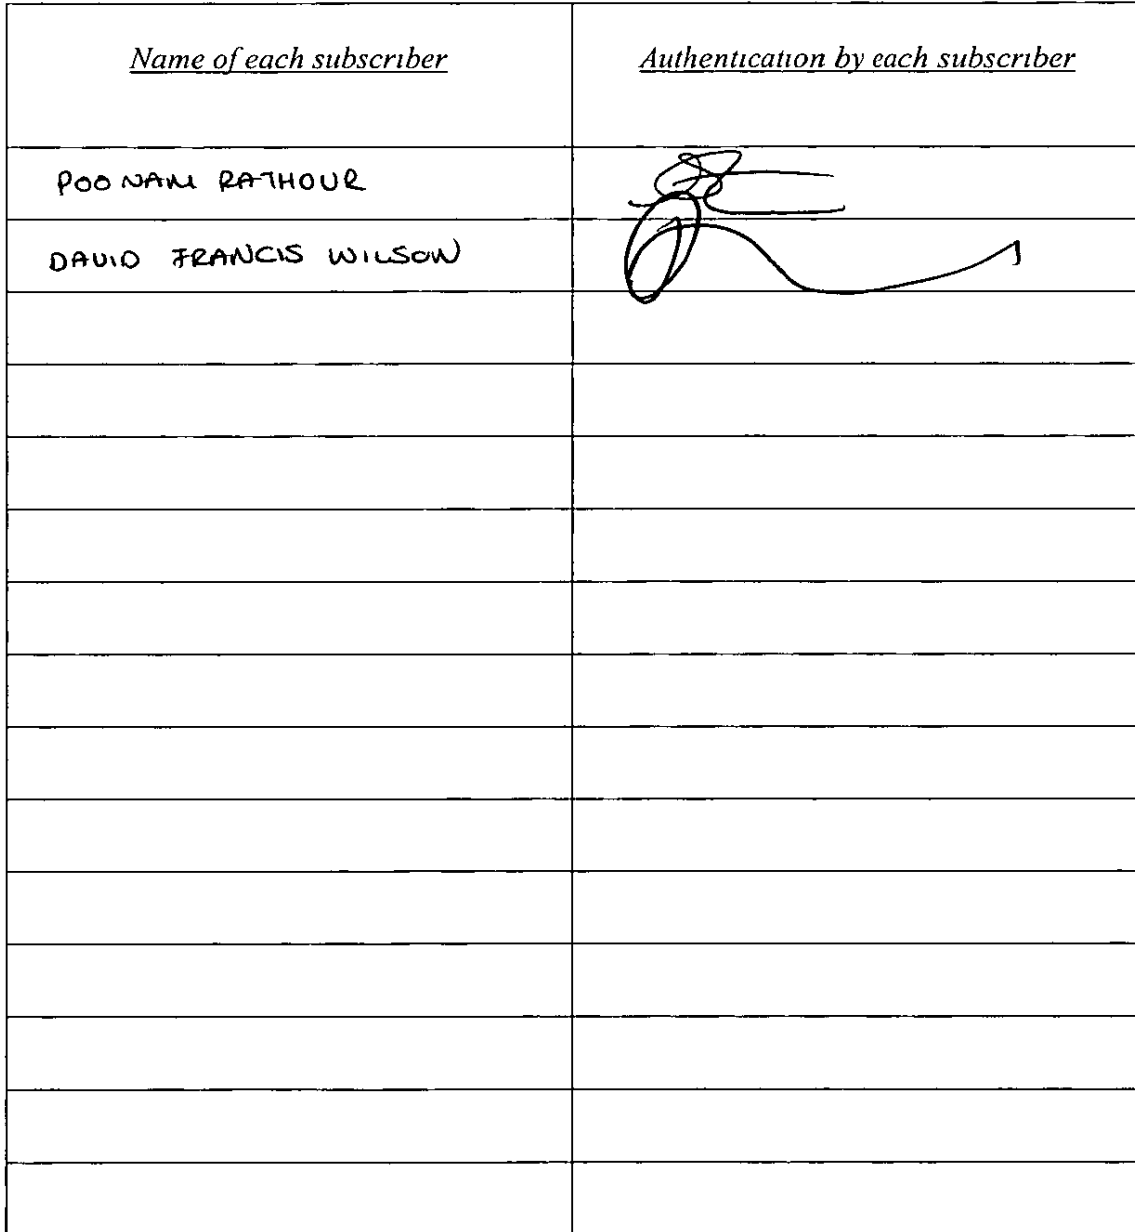 Name of each subscriber
Authentication by each subscriber
POONAM RATHOUR
DAVID FRANCIS WILSON